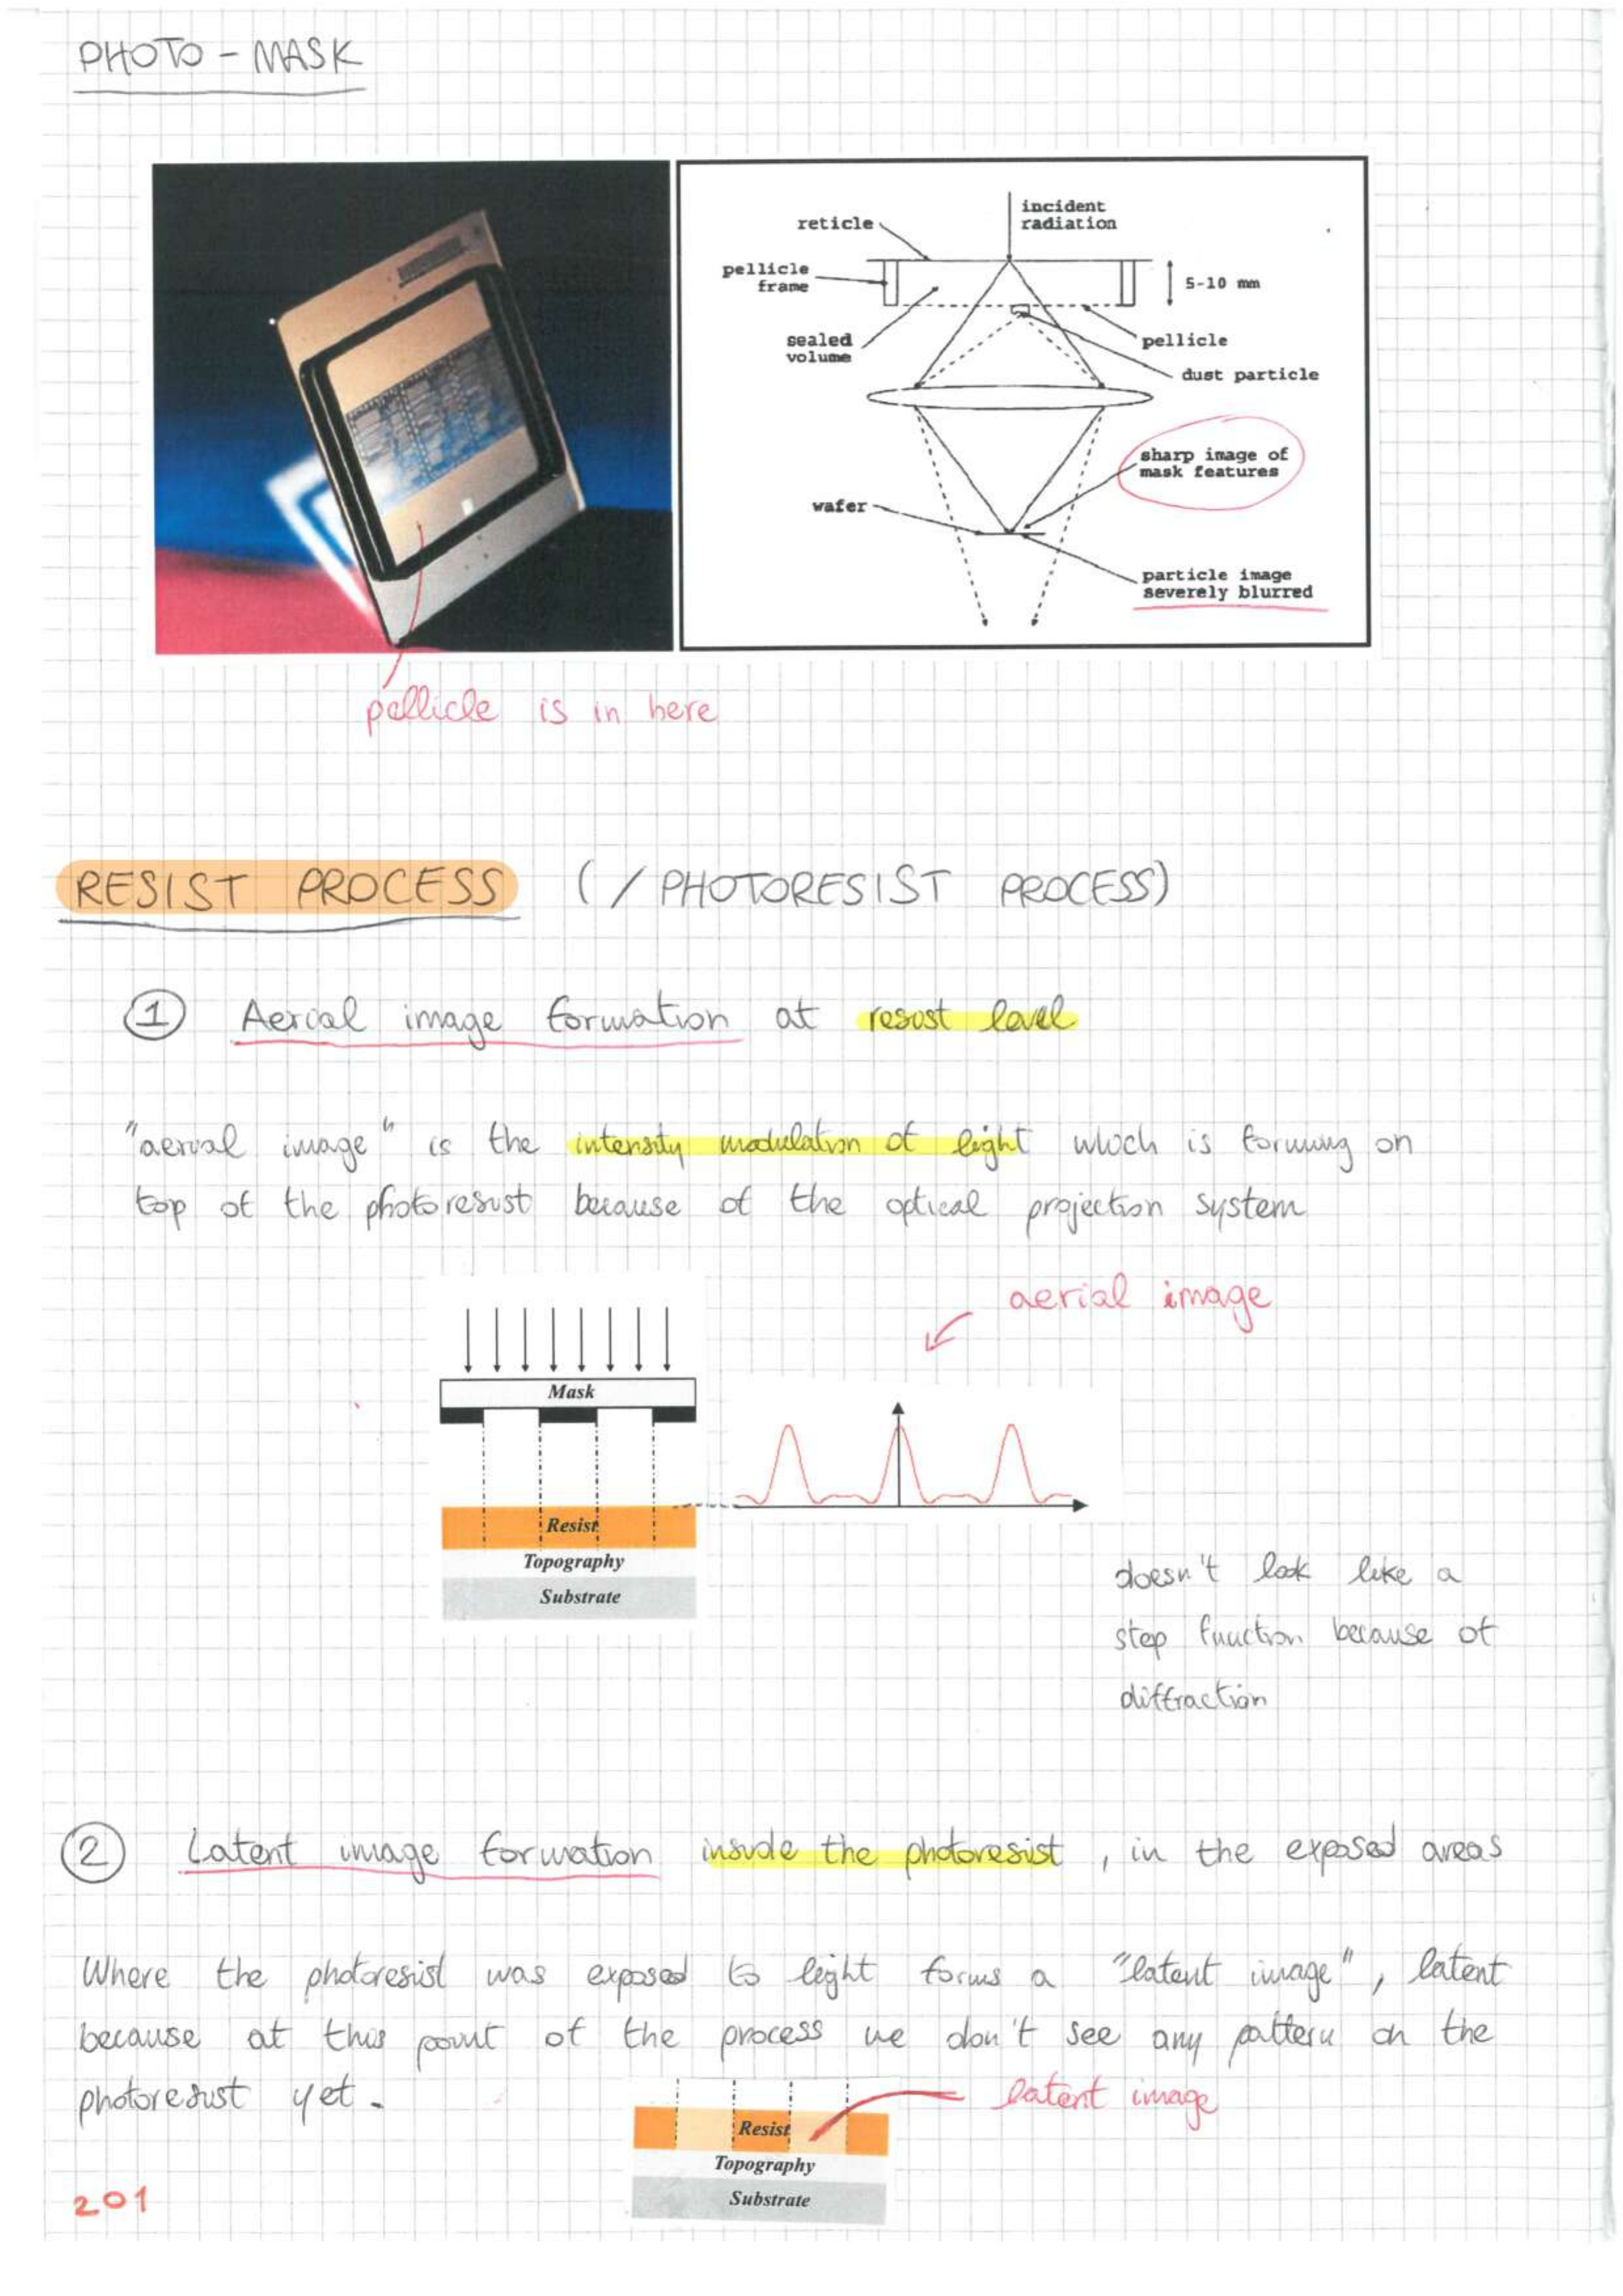 PHOTO - MASK
incident
radiation
reticle
pellicle
frame
5-10 mm
sealed
volume
pellicle
dust particle
sharp image of
mask features
wafer
particle image
severely blurred
pellicle is in here
RESIST PROCESS (/ PHOTORESIST PROCESS)
1 Aerial image formation at resist level
"aerial image" is the intensity modulation of light which is forming on
top of the photoresist because of the optical projection system
aerial image
Mask
Resist
Topography
Substrate
doesn't look like a
step function because of
diffraction
2 Latent image formation inside the photoresist, in the exposed areas
Where the photoresist was exposed to light forms a "latent image", latent
because at this point of the process we don't see any pattern on the
photoresist yet.
latent image
Resist
Topography
Substrate
201